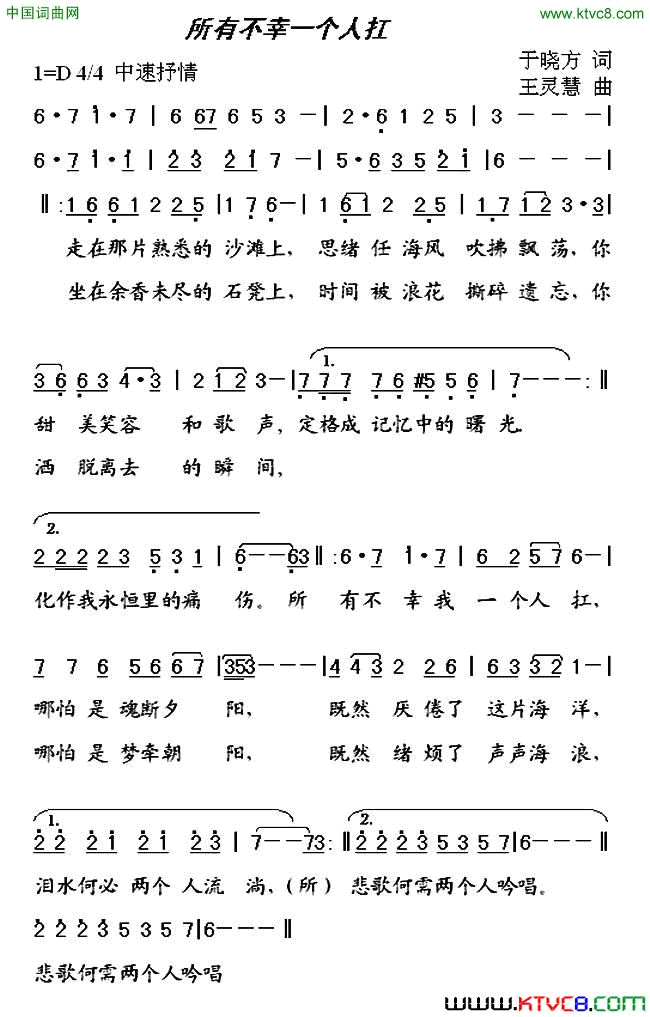 中国词曲网
http://www.ktvc8.com
所有不幸一个人扛
于晓方 词
1=D 4/4 中速抒情
王灵慧 曲
6·7 i·7 | 6 67 6 5 3 - | 2·6 1 2 5 | 3 - - - |
6·7 i·i | 2 3 2 i 7 - | 5·6 3 5 2 i | 6 - - - |
‖:1 6 6 1 2 2 5 | 1 7 6 - | 1 6 1 2 2 5 | 1 7 1 2 3·3 |
走在那片熟悉的 沙滩上， 思绪 任 海风 吹拂 飘 荡，你
坐在余香未尽的 石凳上， 时间 被 浪花 撕碎 遗 忘，你
1.
3 6 6 3 4·3 | 2 1 2 3 - | 7 7 7 7 6 #5 5 6 | 7 - - - :‖
甜 美笑容 和 歌 声，定格成 记忆中的 曙 光.
洒 脱离去 的 瞬 间，
2.
2 2 2 2 3 5 3 1 | 6 - - 6 3 ‖:6·7 i·7 | 6 2 5 7 6 - |
化作我永恒里的痛 伤。 所 有不 幸 我 一 个人 扛，
7 7 6 5 6 6 7 | 353 - - - | 4 4 3 2 2 6 | 6 3 3 2 1 - |
哪怕 是 魂断 夕 阳， 既然 厌 倦了 这片海 洋，
哪怕 是 梦牵 朝 阳， 既然 绪 烦了 声声海 浪，
1. 2.
2 2 2 i 2 i 2 3 | 7 - - 7 3 :‖ 2 2 2 3 5 3 5 7 | 6 - - - ‖
泪水何必 两个 人流 淌，（所） 悲歌何需两个人吟唱。
2 2 2 3 5 3 5 7 | 6 - - - ‖
悲歌何需两个人吟唱
www.KTVC8.com